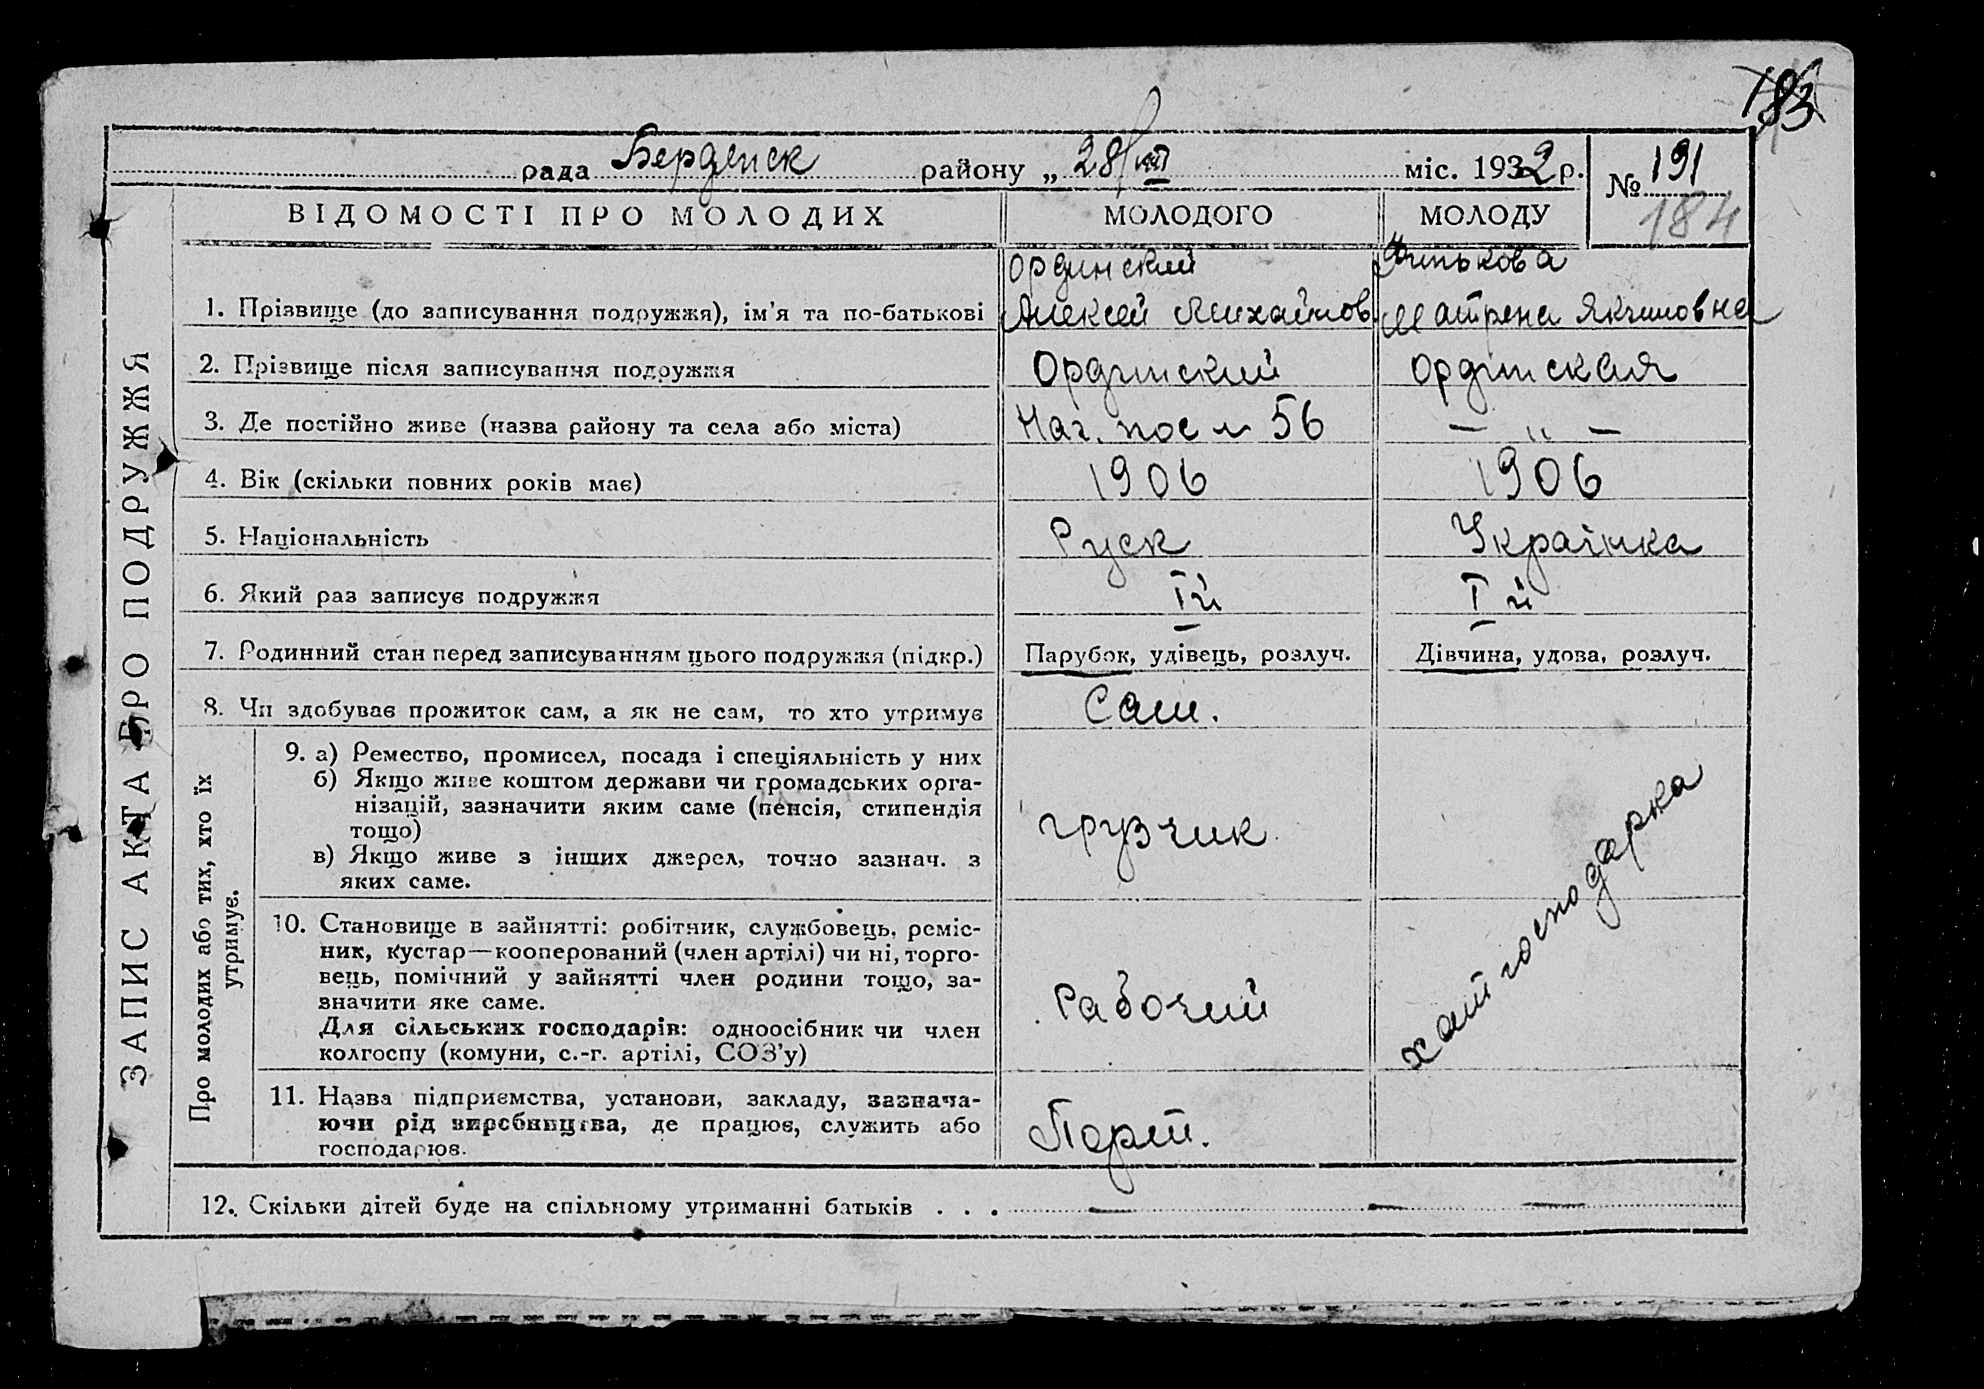 183
рада Бердянск району „ 28/VII міс. 1932 р.
№ 191
184
ЗАПИС АКТА ПРО ПОДРУЖЖЯ
ВІДОМОСТІ ПРО МОЛОДИХ МОЛОДОГО МОЛОДУ
Ординский
1. Прізвище (до записування подружжя), ім'я та по-батькові Алексей Михайлов. Матрена Якимовна
2. Прізвище після записування подружжя Ординский Ординская
3. Де постійно живе (назва району та села або міста) Наг. пос 56 — „ —
4. Вік (скільки повних років має) 1906 1906
5. Національність Руск Українка
6. Який раз записує подружжя Iй I й
7. Родинний стан перед записуванням цього подружжя (підкр.) Парубок, удівець, розлуч. Дівчина, удова, розлуч.
8. Чи здобуває прожиток сам, а як не сам, то хто утримує Сам.
Про молодих або тих, хто їх
утримує.
9. а) Ремество, промисел, посада і спеціяльність у них
б) Якщо живе коштом держави чи громадських орга-
нізацій, зазначити яким саме (пенсія, стипендія
тощо)
в) Якщо живе з інших джерел, точно зазнач. з
яких саме.
грузчик
хат господарка
10. Становище в зайнятті: робітник, службовець, реміс-
ник, кустар—кооперований (член артілі) чи ні, торго-
вець, помічний у зайнятті член родини тощо, за-
значити яке саме.
Для сільських господарів: одноосібник чи член
колгоспу (комуни, с.-г. артілі, СОЗ'у)
Рабочий
11. Назва підприємства, установи, закладу, зазнача-
ючи рід виробництва, де працює, служить або
господарює.
Порт.
12. Скільки дітей буде на спільному утриманні батьків . . . — — —